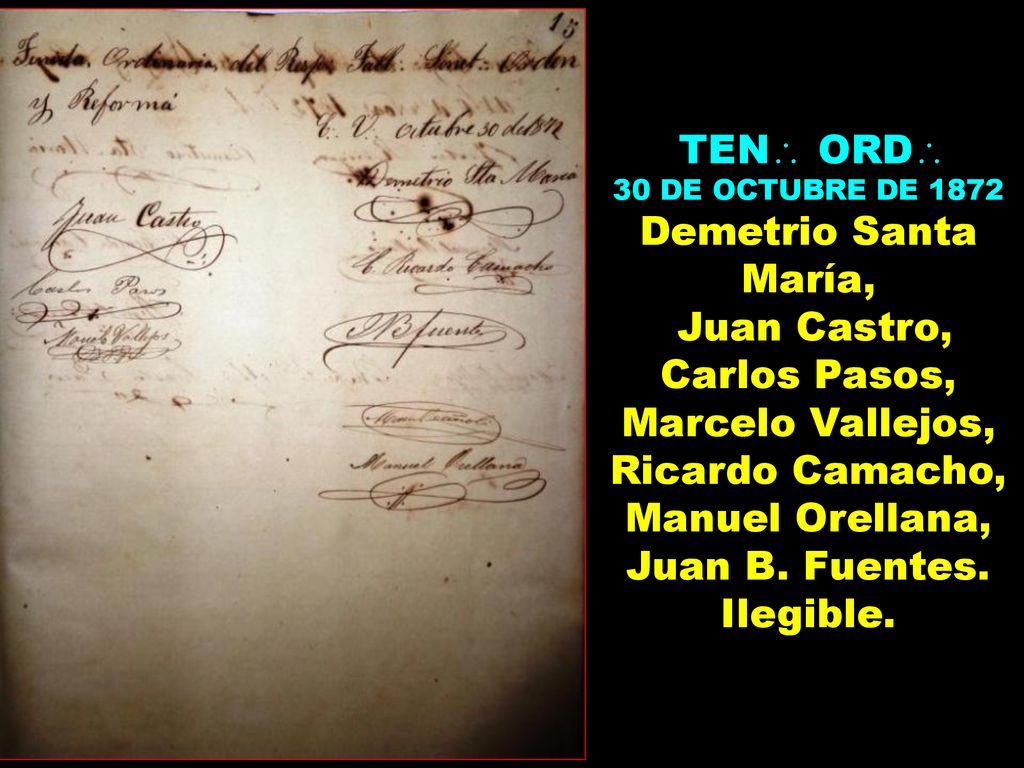 15
Tenida. Ordinaria, del Resp∴ Tall∴ Simb∴ Orden
y Reforma
E. V. Octubre 30 de 1872
Demetrio Sta María
Juan Castro
E. Ricardo Camacho
Carlos Pasos
JNB Fuente
Manuel Orellana
TEN∴ ORD∴
30 DE OCTUBRE DE 1872
Demetrio Santa
María,
Juan Castro,
Carlos Pasos,
Marcelo Vallejos,
Ricardo Camacho,
Manuel Orellana,
Juan B. Fuentes.
Ilegible.